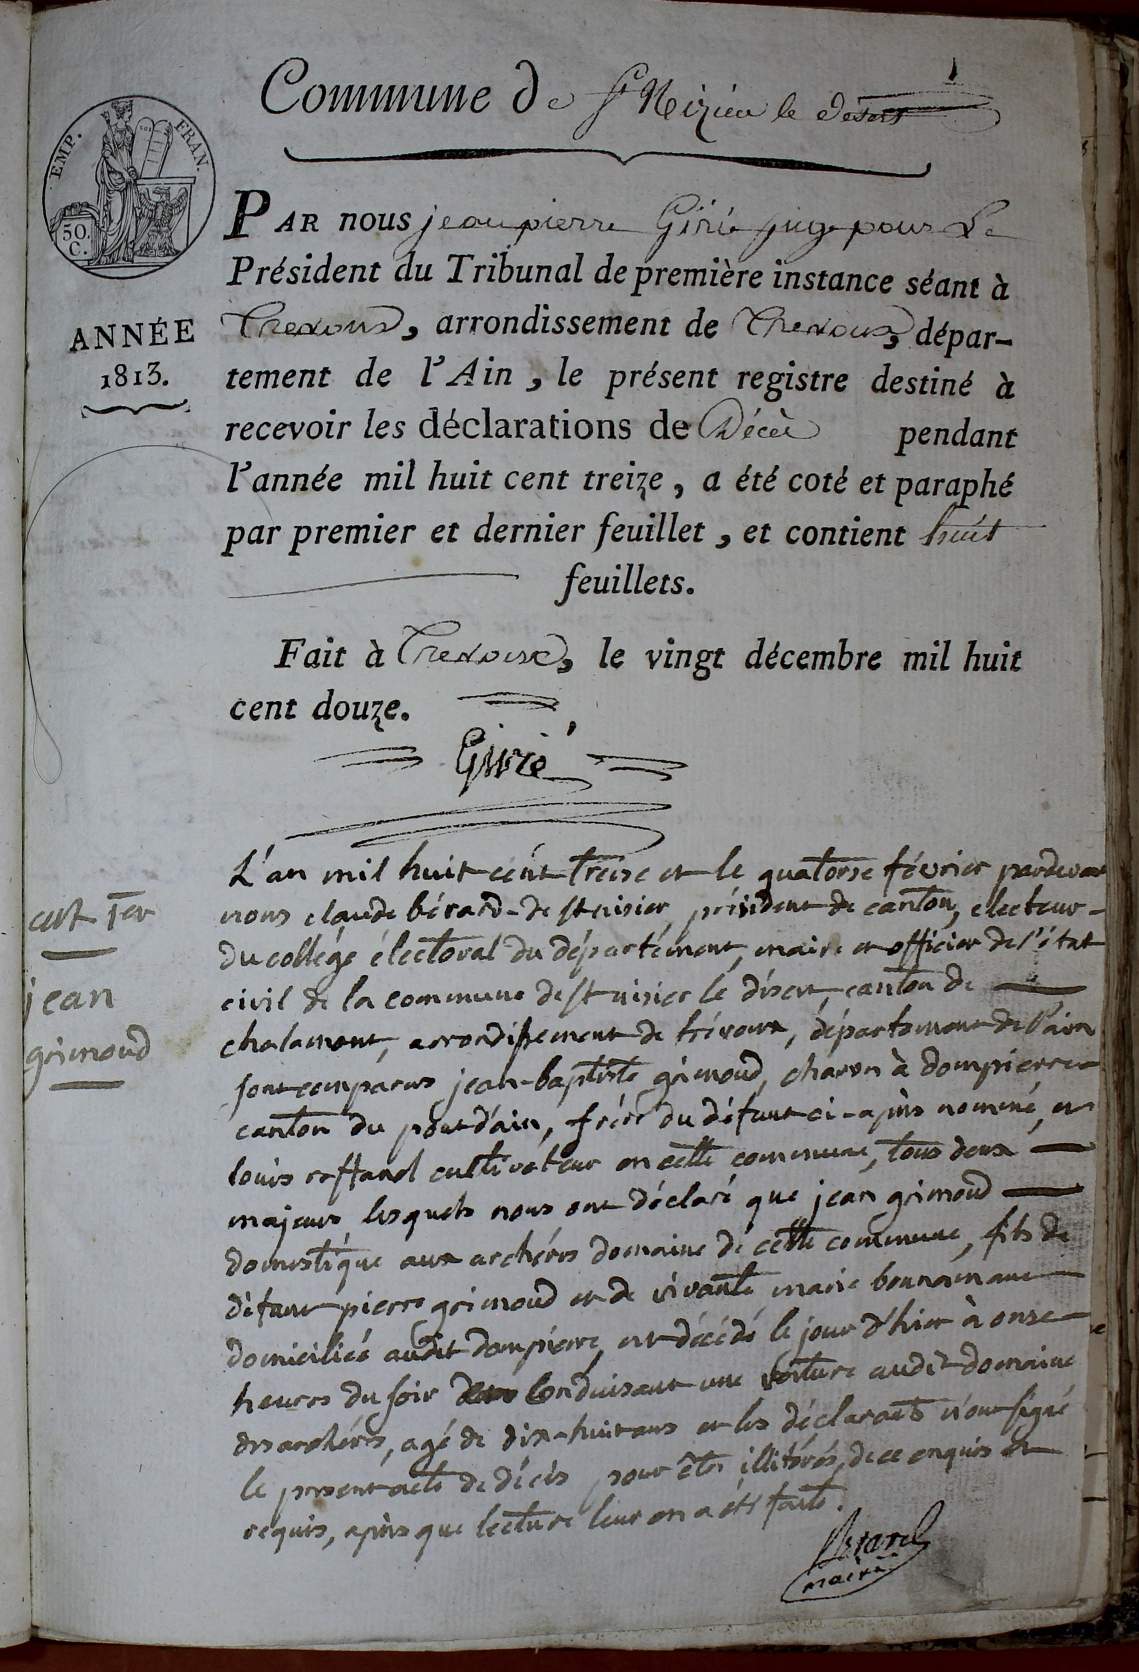 1
Commune de St Nizier le desert
EMP. FRAN.
50.
C.
PAR nous jean pierre Girié juge pour Le
Président du Tribunal de première instance séant à
Trevoux, arrondissement de Trevoux, dépar-
ANNÉE
1813.
tement de l'Ain, le présent registre destiné à
recevoir les déclarations de Décès pendant
l'année mil huit cent treize, a été coté et paraphé
par premier et dernier feuillet, et contient huit
feuillets.
Fait à Trevoux, le vingt décembre mil huit
cent douze.
Girié
art 1er
jean
grimoud
L'an mil huit cent treise et le quatorse février pardevant
nous claude bérard de st nisier président de canton, electeur
du collége électoral du département, maire et officier de l'état
civil de la commune de st nisier le désert, canton de
chalamont, arrondissement de trévoux, département de l'ain
sont comparus jean-baptiste grimoud, charon à dompierre
canton du pont d'ain, frère du défunt ci-après nommé, et
louis cultivateur en cette commune, tous deux
majeurs lesquels nous ont déclaré que jean grimoud
domestique aux archéres domaine de cette commune, fils de
défunt pierre grimoud et de vivante marie
domiciliée audit dompierre, est décédé le jour d'hier à onse
heures du soir conduisant une voiture audit domaine
des archéres, agé de dix-huit ans et les déclarants n'ont signé
le present acte de décès pour être illitérés, de ce enquis et
requis, après que lecture leur en a été faite.
Bérard
maire